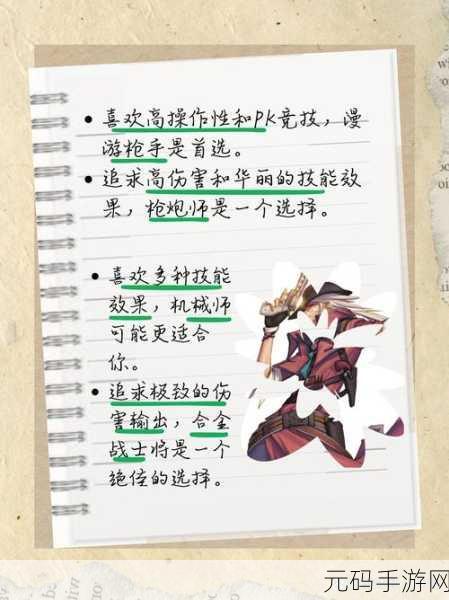 • 喜欢高操作性和PK竞技，漫
游枪手是首选。
• 追求高伤害和华丽的技能效
果，枪炮师是一个选择。
• 喜欢多种技能
效果，机械师
可能更适合
你。
• 追求极致的伤
害输出，合金
战士将是一个
绝佳的选择。
元码手游网